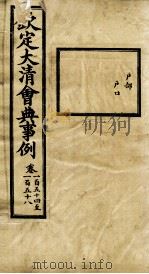 戶部
戶口
欽定大清會典事例
卷
一百五十四至
一百五十八
mtoou.info